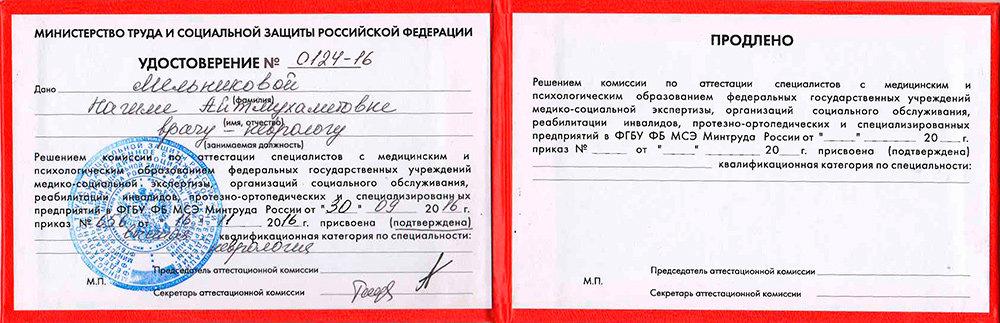 МИНИСТЕРСТВО ТРУДА И СОЦИАЛЬНОЙ ЗАЩИТЫ РОССИЙСКОЙ ФЕДЕРАЦИИ
УДОСТОВЕРЕНИЕ № 0124-16
Дано Мельниковой
(фамилия)
Нагиме Айтмухаметовне
(имя, отчество)
врачу – неврологу
(занимаемая должность)
Решением комиссии по аттестации специалистов с медицинским и
психологическим образованием федеральных государственных учреждений
медико-социальной экспертизы, организаций социального обслуживания,
реабилитации инвалидов, протезно-ортопедических и специализированных
предприятий в ФГБУ ФБ МСЭ Минтруда России от "30" 09 2016г.
приказ № от "16" 11 2016г. присвоена (подтверждена)
квалификационная категория по специальности:
неврология
Председатель аттестационной комиссии
М.П.
Секретарь аттестационной комиссии
ПРОДЛЕНО
Решением комиссии по аттестации специалистов с медицинским и
психологическим образованием федеральных государственных учреждений
медико-социальной экспертизы, организаций социального обслуживания,
реабилитации инвалидов, протезно-ортопедических и специализированных
предприятий в ФГБУ ФБ МСЭ Минтруда России от "____" ____ 20___г.
приказ №_____ от "____" ______ 20___г. присвоена (подтверждена)
квалификационная категория по специальности:
Председатель аттестационной комиссии
М.П.
Секретарь аттестационной комиссии